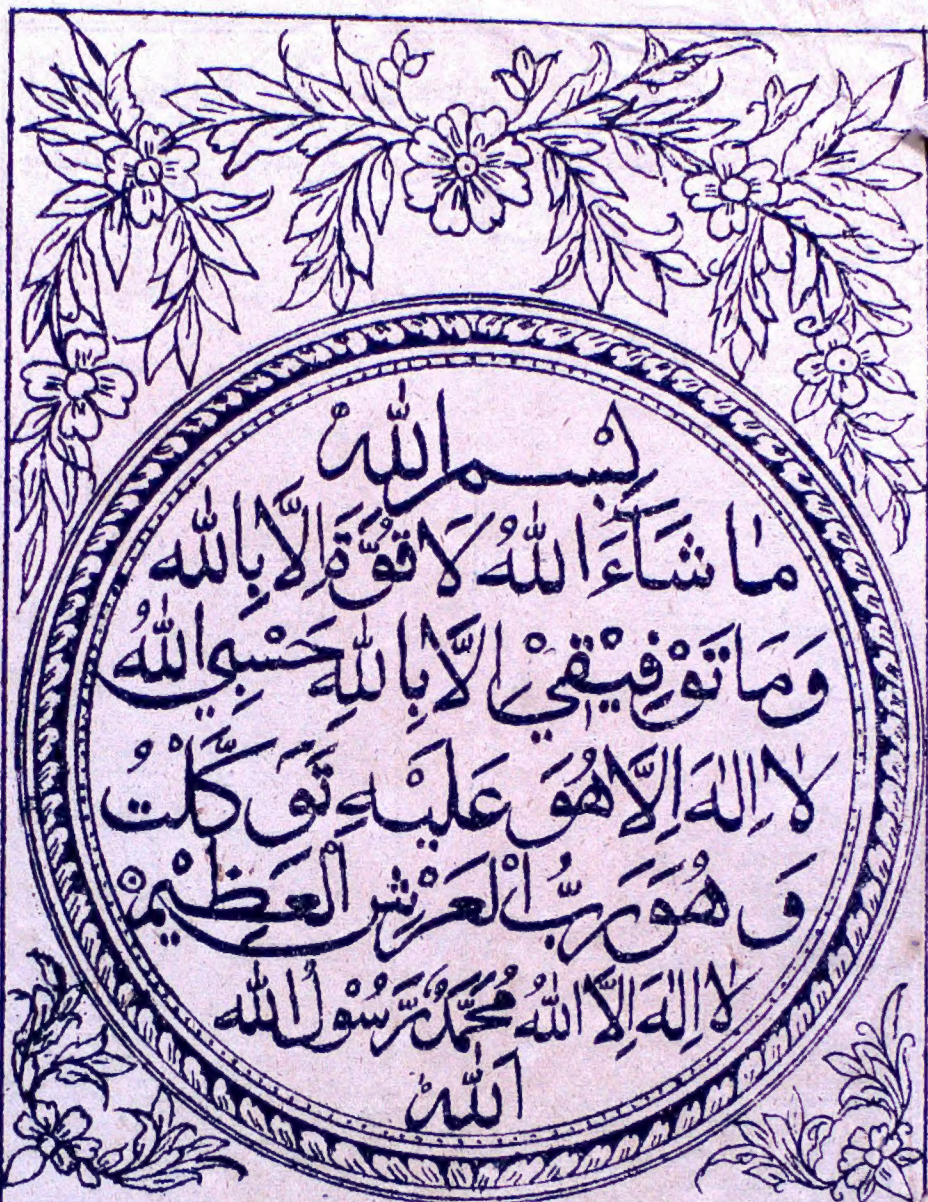 بِسْمِ اللهِ
مَا شَاءَ اللهُ لَا قُوَّةَ اِلَّا بِاللهِ
وَمَا تَوْفِيْقِيْ اِلَّا بِاللهِ حَسْبِيَ اللهُ
لَا اِلٰهَ اِلَّا هُوَ عَلَيْهِ تَوَكَّلْتُ
وَ هُوَ رَبُّ الْعَرْشِ الْعَظِيْمْ
لَا اِلٰهَ اِلَّا اللهُ مُحَمَّدٌ رَّسُوْلُ اللهِ
اَللهُ